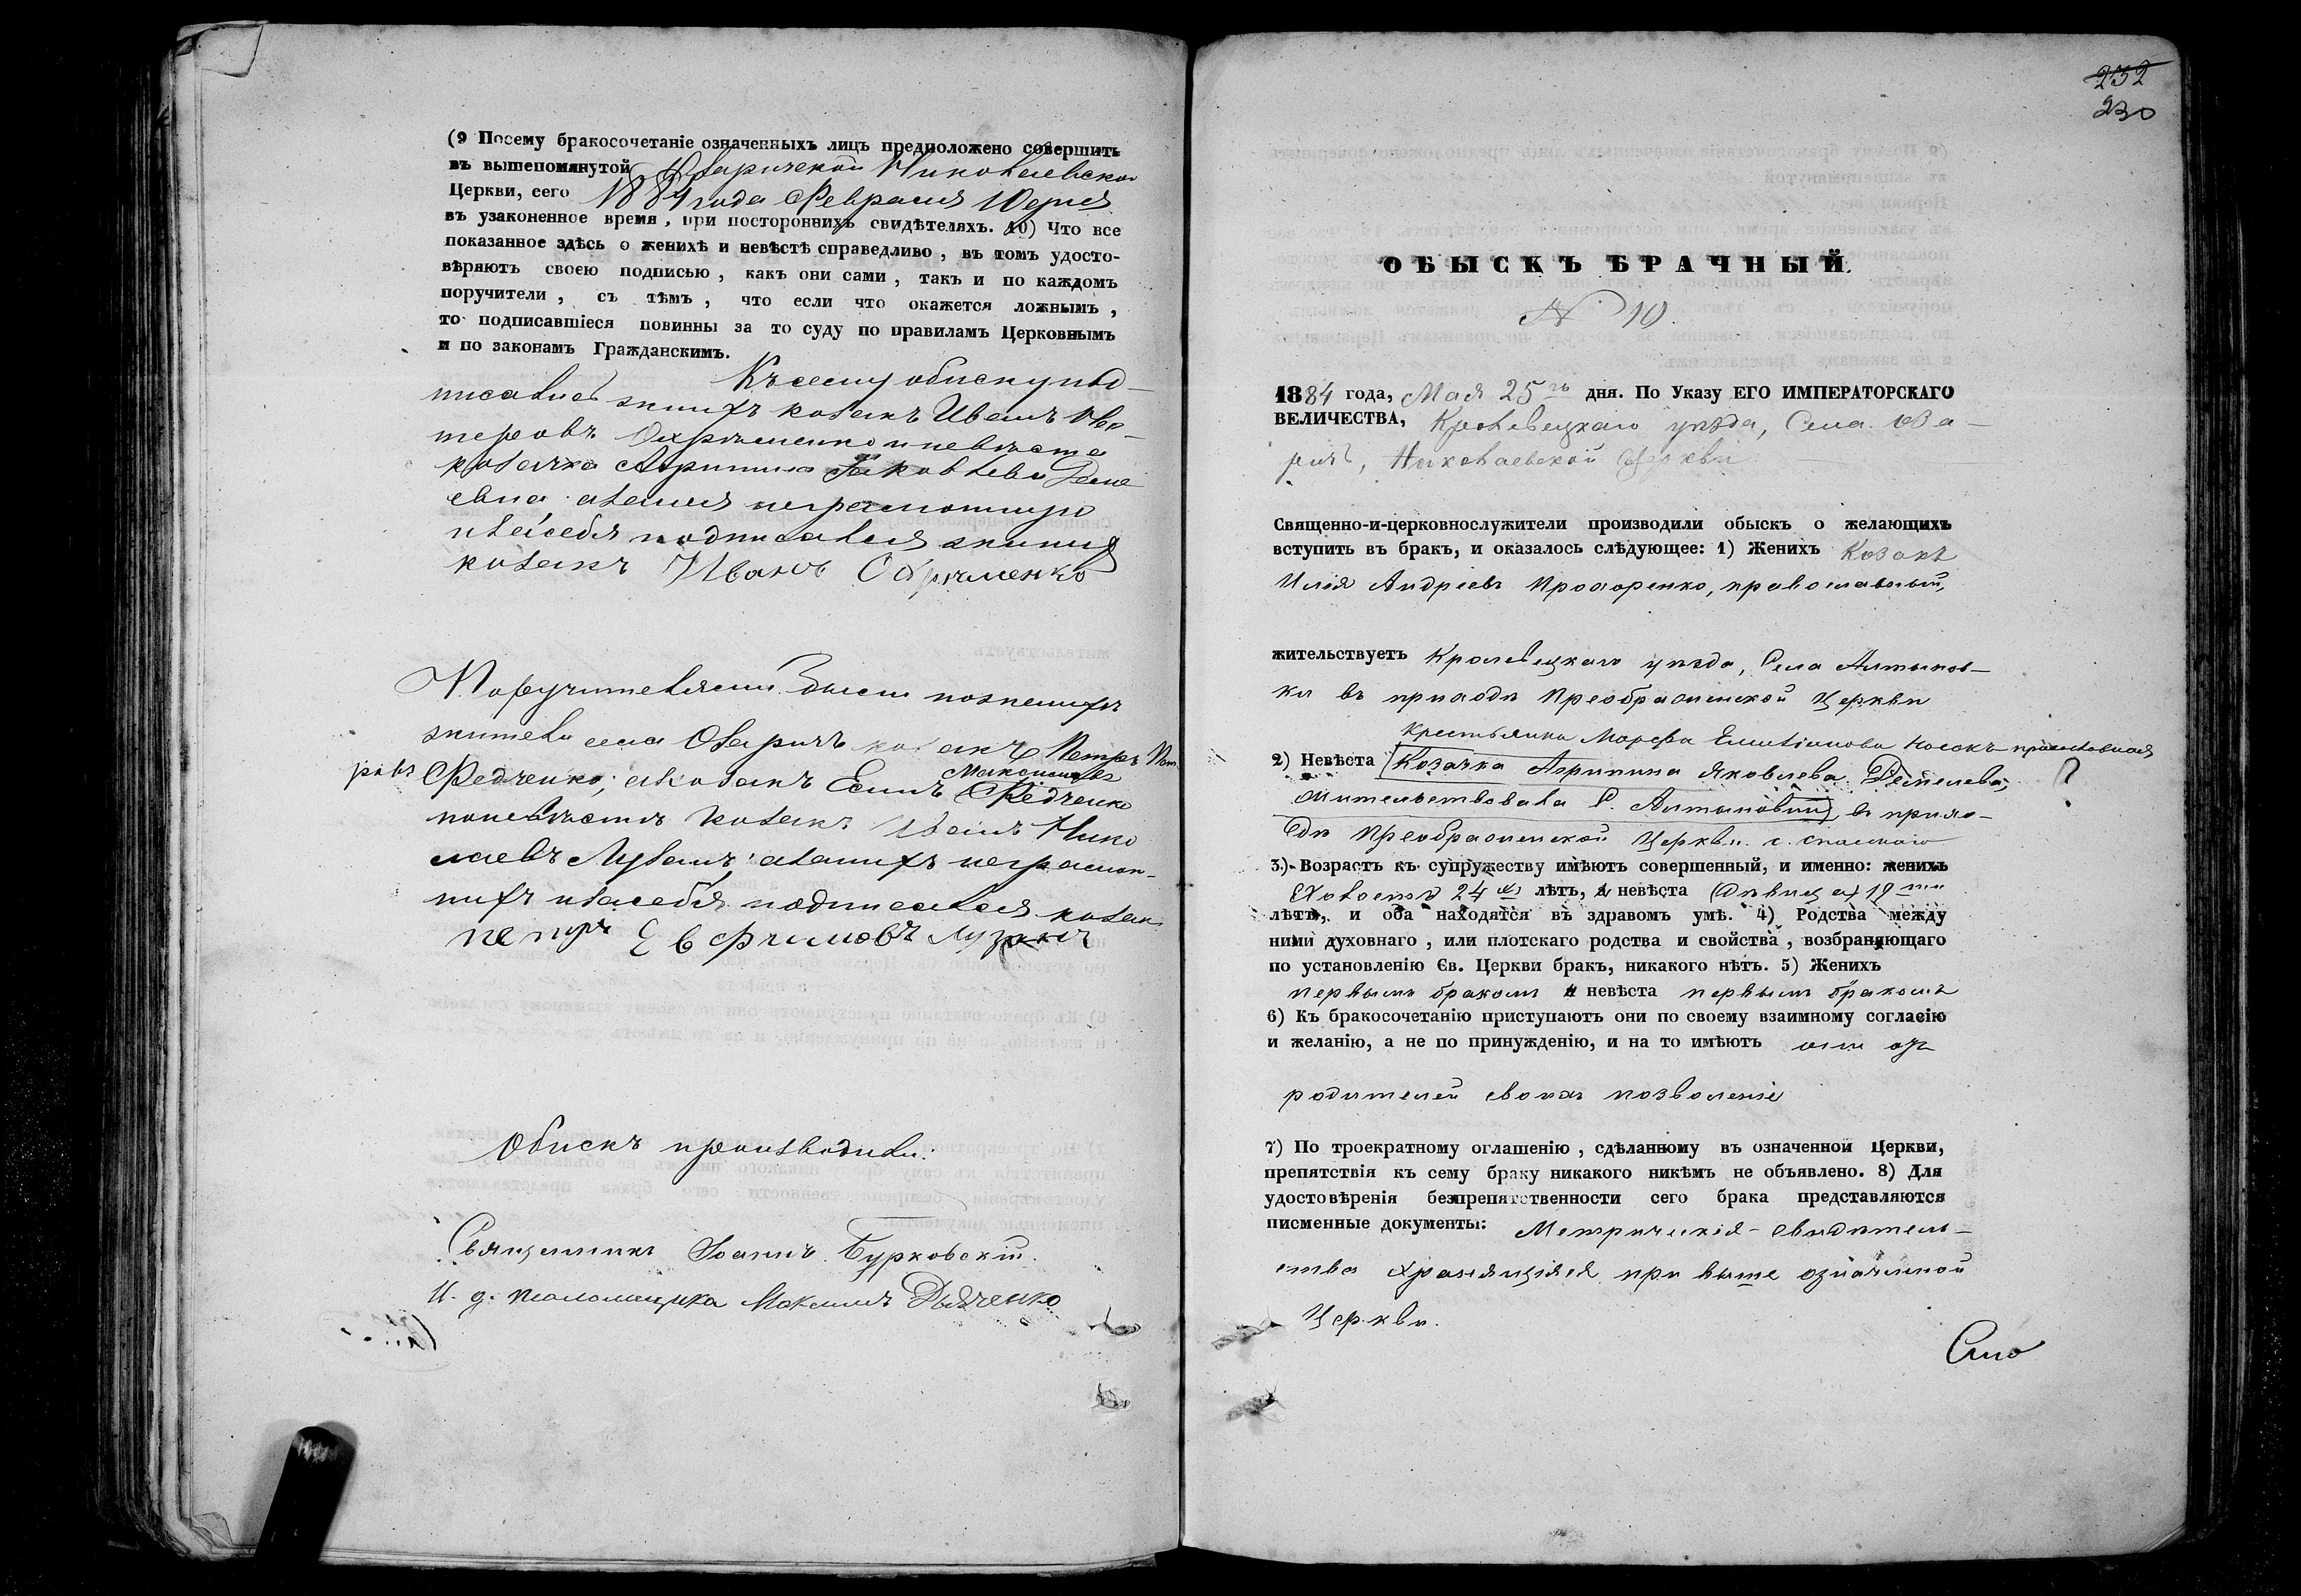 (9 Посему бракосочетаніе означенныхъ лицъ предположено совершить
въ вышепомянутой Озарической Николаевской
Церкви, сего 1884 года Февраля 10 дня
въ узаконенное время, при постороннихъ свидѣтеляхъ. 10) Что все
показанное здѣсь о женихѣ и невѣстѣ справедливо, въ томъ удосто-
вѣряютъ своею подписью, какъ они сами, такъ и по каждомъ
поручители, съ тѣмъ, что если что окажется ложнымъ,
то подписавшіеся повинны за то суду по правиламъ Церковнымъ
и по законамъ Гражданскимъ.
Къ сему обиску под-
писались козакъ Иванъ
Охрѣменко и невѣста
козачка Агрипина Яковлева
а за нея неграмотную
и за себя подписался
козакъ Иванъ Охрѣменко
Поручителями были
жители села Озаричъ козакъ Петръ Пет
ровъ Федченко, и козакъ Максимовъ Федченко
по невѣстѣ козакъ Иванъ Нико
лаевъ Лузанъ, а за нихъ неграмот-
нихъ и за себя подписался козакъ
петръ Евфимовъ Лузанъ
Обискъ производили:
Священникъ Іоаннъ Бурковскій.
И. д. псаломщика Максимъ Дьяченко
232
230
ОБЫСКЪ БРАЧНЫЙ.
N 10.
1884 года, Мая 25 дня. По Указу ЕГО ИМПЕРАТОРСКАГО
ВЕЛИЧЕСТВА, Кролевецкаго уѣзда, Села Оза-
ричъ, Николаевской Церкви
Священно-и-церковнослужители производили обыскъ о желающихъ
вступить въ бракъ, и оказалось слѣдующее: 1) Женихъ Козакъ
Илія Андреевъ Прохоренко, православный,
жительствуетъ Кролевецкаго уѣзда, Села Алтынов-
ки въ приходѣ Преображенской Церкви
Крестьянка Марфа Емиліанова Носокъ православная
2) Невѣста Козачка Агрипина Яковлева
жительствовала С. Алтыновки, въ прихо-
дѣ Преображенской Церкви. с. Спаскаго
3) Возрастъ къ супружеству имѣютъ совершенный, и именно: женихъ
(Холостъ) 24 лѣтъ, и невѣста (дѣвица) 19
лѣтъ, и оба находятся въ здравомъ умѣ. 4) Родства между
ними духовнаго, или плотскаго родства и свойства, возбраняющаго
по установленію Св. Церкви бракъ, никакого нѣтъ. 5) Женихъ
первымъ бракомъ и невѣста первымъ бракомъ
6) Къ бракосочетанію приступаютъ они по своему взаимному согласію
и желанію, а не по принужденію, и на то имѣютъ они отъ
родителей своихъ позволеніе
7) По троекратному оглашенію, сдѣланному въ означенной Церкви,
препятствія къ сему браку никакого никѣмъ не объявлено. 8) Для
удостовѣренія безпрепятственности сего брака представляются
писменные документы: Метрическія свидѣтель-
ства хранящіяся при выше означенной
Церкви.